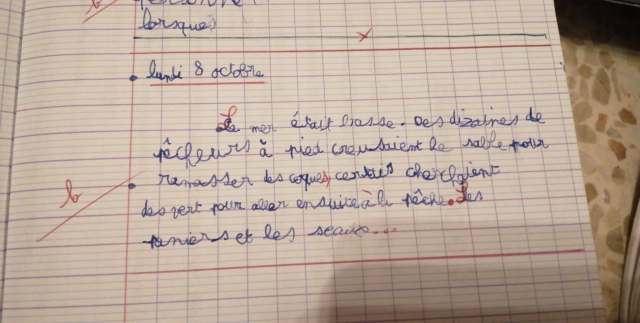 lorsque
lundi 8 octobre
La mer était basse. Des dizaines de
pêcheurs à pied creusaient le sable pour
ramasser des coques, certais cherchaient
des vert pour aller ensuite à la pêche. Les
paniers et les seaux...